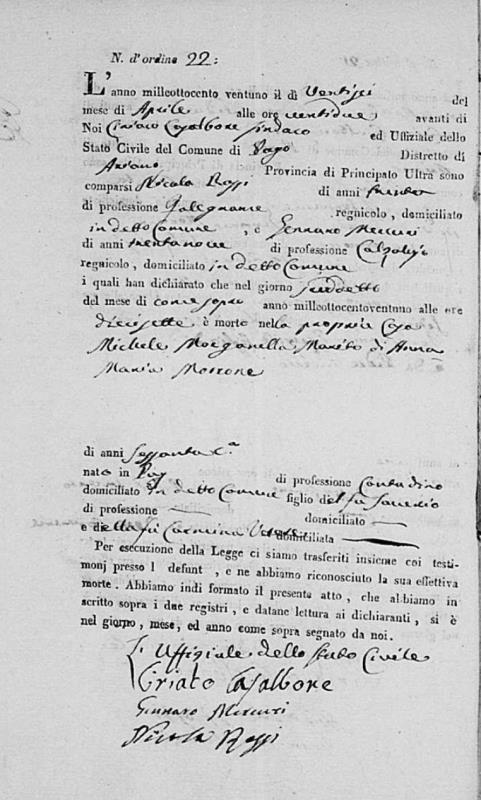 N. d'ordine 22:
L'anno milleottocento ventuno il dì Ventisei del
mese di Aprile alle ore ventidue avanti di
Noi Ciriaco Casalbore Sindaco ed Uffiziale dello
Stato Civile del Comune di Zago Distretto di
Ariano Provincia di Principato Ultra sono
comparsi Nicola Rossi di anni trenta
di professione Falegname regnicolo, domiciliato
in detto Comune, e Gennaro Mercuri
di anni trentanove di professione Calzolajo
regnicolo, domiciliato in detto Comune
i quali han dichiarato che nel giorno suddetto
del mese di come sopra anno milleottocentoventuno alle ore
diecisette è morto nella propria Casa
Michele Morganella Marito di Anna
Maria Morrone
di anni Sessanta C.a
nato in di professione Contadino
domiciliato in detto Comune figlio del fu Saverio
di professione — domiciliato —
e della fu Carmina domiciliata —
Per esecuzione della Legge ci siamo trasferiti insieme coi testi-
monj presso l defunt , e ne abbiamo riconosciuto la sua effettiva
morte. Abbiamo indi formato il presente atto, che abbiamo in
scritto sopra i due registri, e datane lettura ai dichiaranti, si è
nel giorno, mese, ed anno come sopra segnato da noi.
L'Uffiziale dello Stato Civile
Criaco Casalbore
Gennaro Mercuri
Nicola Rossi